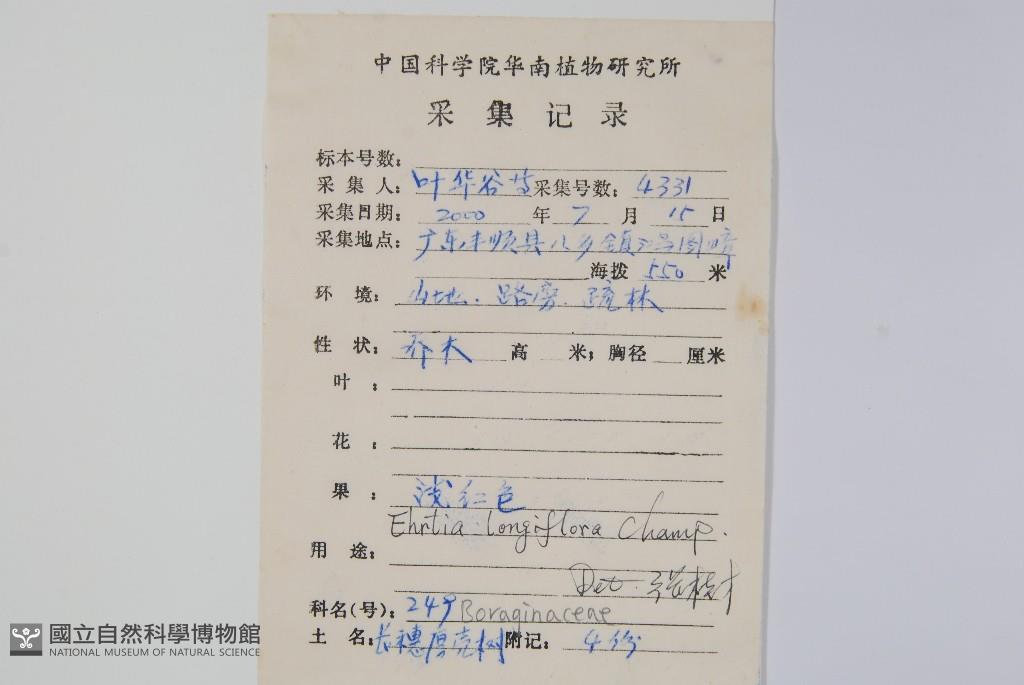 中国科学院华南植物研究所
采集记录
标本号数：
采集人：叶华谷等 采集号数：4331
采集日期：2000年7月15日
采集地点：广东丰顺县八乡镇鸿图嶂
海拨 550 米
环境：山地．路旁．疏林
性状：乔木 高 米；胸径 厘米
叶：
花：
果：浅红色
Ehrtia longiflora Champ.
用途：
Det.
科名(号)：249 Boraginaceae
土名：长穗厚壳树 附记：4份
國立自然科學博物館
NATIONAL MUSEUM OF NATURAL SCIENCE